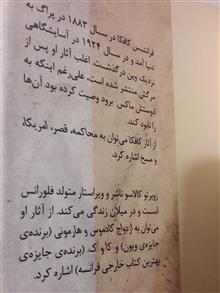 فرانتس کافکا در سال ۱۸۸۳ در پراگ به
دنیا آمد و در سال ۱۹۲۴ در آسایشگاهی
نزدیک وین درگذشت. اغلب آثار او پس از
مرگش منتشر شده است، علی‌رغم اینکه به
دوستش ماکس برود وصیت کرده بود آن‌ها
را نابود کند.
از آثار کافکا می‌توان به محاکمه، قصر، آمریکا،
و مسخ اشاره کرد.
روبرتو کالاسو ناشر و ویراستار متولد فلورانس
است و در میلان زندگی می‌کند. از آثار او
می‌توان به ازدواج کادموس و هارمونی (برنده‌ی
جایزه‌ی ویون) و کا و ک. (برنده‌ی جایزه‌ی
بهترین کتاب خارجی فرانسه) اشاره کرد.